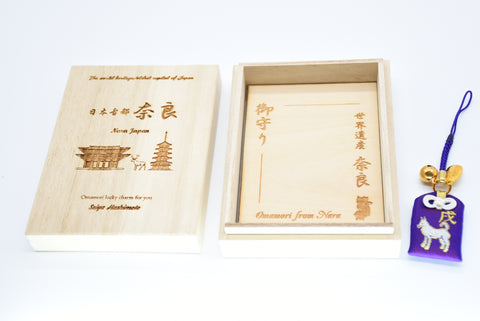 The world heritage, oldest capital of Japan
日本古都 奈良
Nara Japan
Omamori lucky charm for you
Seiya Hashimoto
御守り
世界遺産 奈良
Omamori from Nara
戌